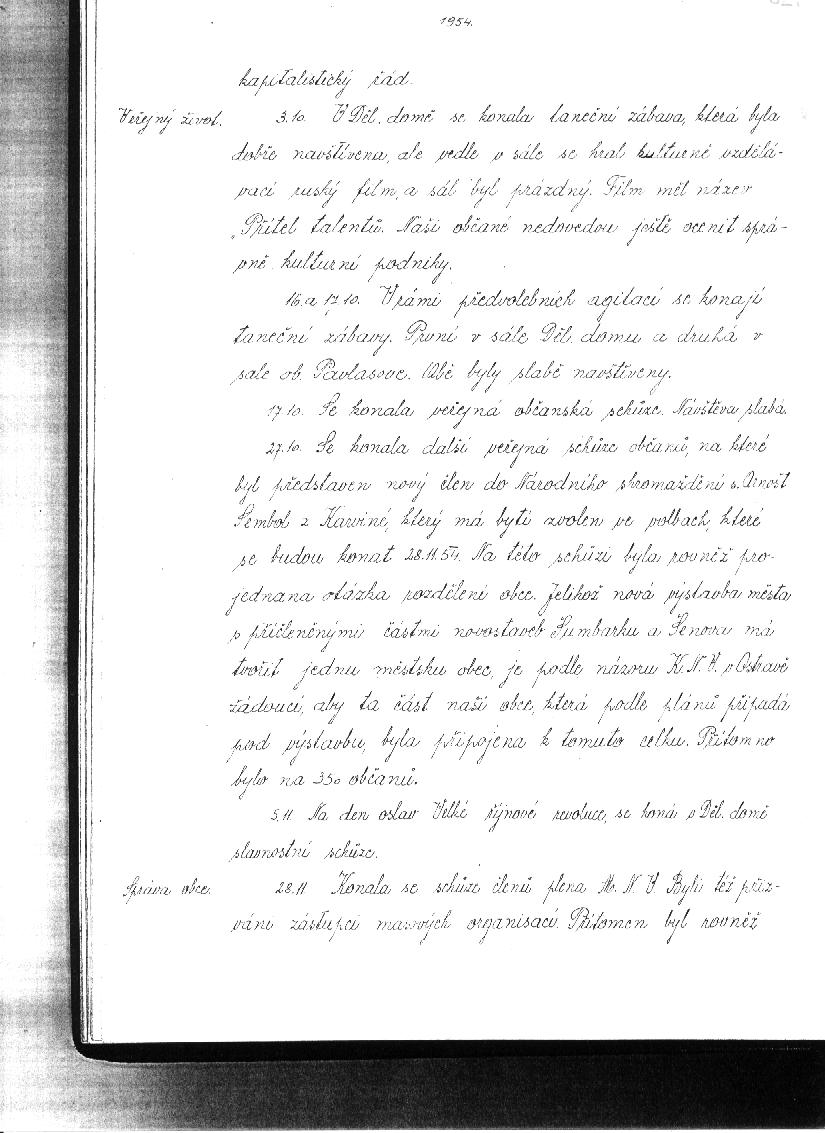 1954.
kapitalistický řád.
Veřejný život. 3.10. V Děl. domě se konala taneční zábava, která byla
dobře navštívena, ale vedle v sále se hral kulturně vzdělá-
vací ruský film, a sál byl prázdný. Film měl název
„Přítel talentů. Naši občané nedovedou ještě ocenit sprá-
vně kulturní podniky.
16. a 17.10. V rámi předvolebních agitací se konají
taneční zábavy. První v sále Děl. domu a druhá v
sale ob. Pavlasove. Obě byly slabě navštíveny.
17.10. Se konala veřejná občanská schůze. Návštěva slabá.
27.10. Se konala další veřejná schůze občanů, na které
byl představen nový člen do Národního shromaždění s. Arnošt
Sembol z Karviné, který má býti zvolen ve volbach, které
se budou konat 28.11.54. Na této schůzi byla rovněž pro-
jednana otázka rozdělení obce. Jelikož nová výstavba města
s přičleněnými částmi novostaveb Šumbarku a Šenova má
tvořit jednu městsku obec, je podle názoru K.N.V. v Ostravě
žádoucí, aby ta část naší obce, která podle plánů připadá
pod výstavbu, byla připojena k tomuto celku. Přítomno
bylo na 350 občanů.
5.11. Na den oslav Velké říjnové revoluce, se koná v Děl. domě
slavnostní schůze.
Správa obce. 28.11 Konala se schůze členů plena M. N. V. Byli též přiz-
váni zástupci masových organisací. Přítomen byl rovněž